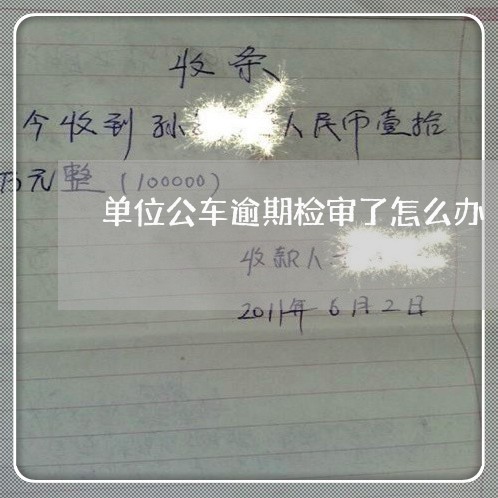 收条
今收到孙 人民币壹拾
万元整（100000）
单位公车逾期检审了怎么办
收款人
2011年6月2日